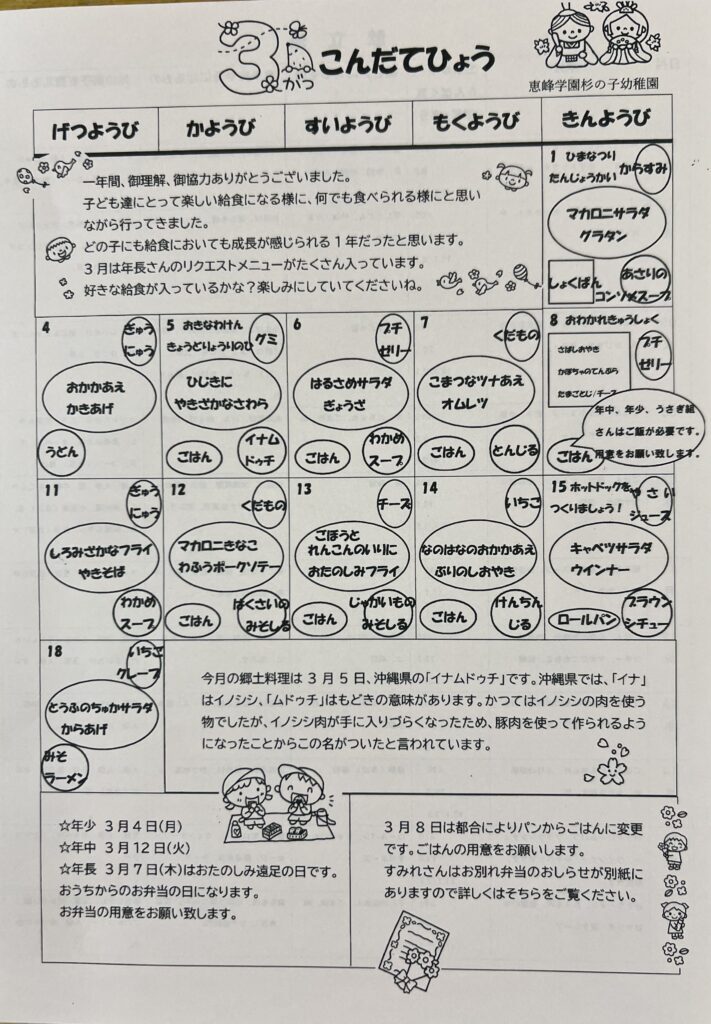 3月
がつ
こんだてひょう
恵峰学園杉の子幼稚園
げつようび
かようび
すいようび
もくようび
きんようび
一年間、御理解、御協力ありがとうございました。
子ども達にとって楽しい給食になる様に、何でも食べられる様にと思い
ながら行ってきました。
どの子にも給食においても成長が感じられる1年だったと思います。
3月は年長さんのリクエストメニューがたくさん入っています。
好きな給食が入っているかな?楽しみにしていてくださいね。
1 ひまなつり
たんじょうかい
からすみ
マカロニサラダ
グラタン
しょくぱん
あさりの
コンソメスープ
4
ぎゅう
にゅう
おかかあえ
かきあげ
うどん
5 おきなわけん
きょうどりょうりのひ
グミ
ひじきに
やきざかなさわら
ごはん
イナム
ドゥチ
6
プチ
ゼリー
はるさめサラダ
ぎょうざ
ごはん
わかめ
スープ
7
くだもの
こまつなツナあえ
オムレツ
ごはん
とんじる
8 おわかれきゅうしょく
プチ
ゼリー
さばしおやき
かぼちゃのてんぷら
たまごとじ/チーズ
ごはん
年中、年少、うさぎ組
さんはご飯が必要です。
用意をお願い致します。
11
ぎゅう
にゅう
しろみざかなフライ
やきそば
わかめ
スープ
12
くだもの
マカロニきなこ
わふうポークソテー
ごはん
はくさいの
みそしる
13
チーズ
ごぼうと
れんこんのいりに
おたのしみフライ
ごはん
じゃがいもの
みそしる
14
いちご
なのはなのおかかあえ
ぶりのしおやき
ごはん
けんちん
じる
15 ホットドックを
つくりましょう!
やさい
ジュース
キャベツサラダ
ウインナー
ロールパン
ブラウン
シチュー
18
いちご
クレープ
とうふのちゅかサラダ
からあげ
みそ
ラーメン
今月の郷土料理は3月5日、沖縄県の「イナムドゥチ」です。沖縄県では、「イナ」
はイノシシ、「ムドゥチ」はもどきの意味があります。かつてはイノシシの肉を使う
物でしたが、イノシシ肉が手に入りづらくなったため、豚肉を使って作られるよう
になったことからこの名がついたと言われています。
☆年少 3月4日(月)
☆年中 3月12日(火)
☆年長 3月7日(木)はおたのしみ遠足の日です。
おうちからのお弁当の日になります。
お弁当の用意をお願い致します。
3月8日は都合によりパンからごはんに変更
です。ごはんの用意をお願いします。
すみれさんはお別れ弁当のおしらせが別紙に
ありますので詳しくはそちらをご覧ください。